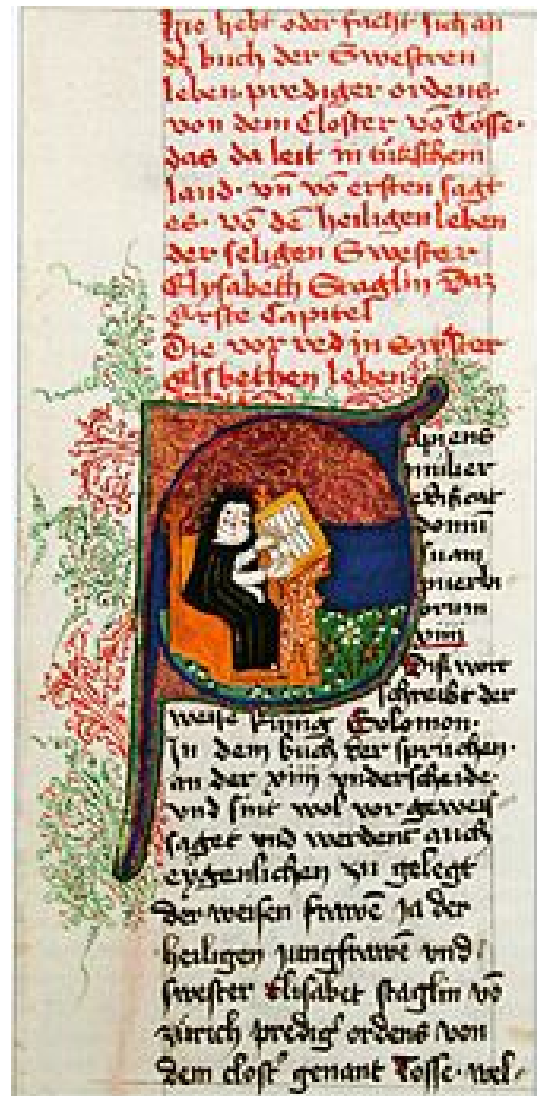 Hie hebt oder facht sich an
dē buch der Swestren
leben prediger ordens
von dem Closter vō Tösse
das da leit in türkschem
land· vn̄ vō ersten sagt
es· vō dē heiligen leben
der seligen Swester
Elysabeth Staglin Daz
Erste Capitel
Die vor red in swester
elsbethen leben
apiens
mulier
edificat
domū
suam
puerbi
orum
xiiij
Diß wort
schreibt der
weise künig Solomon·
In dem buch der sprüchen·
an der xiiij vnderscheide·
vnd sint wol vor geweis
saget vnd werdent auch
eygenlichen zu gelegt
der weisen frawē Ja der
heiligen jungfrawē vnd
swester Elisabet staglin vō
zürich predig' ordens von
dem clost' genant Tösse· wel-